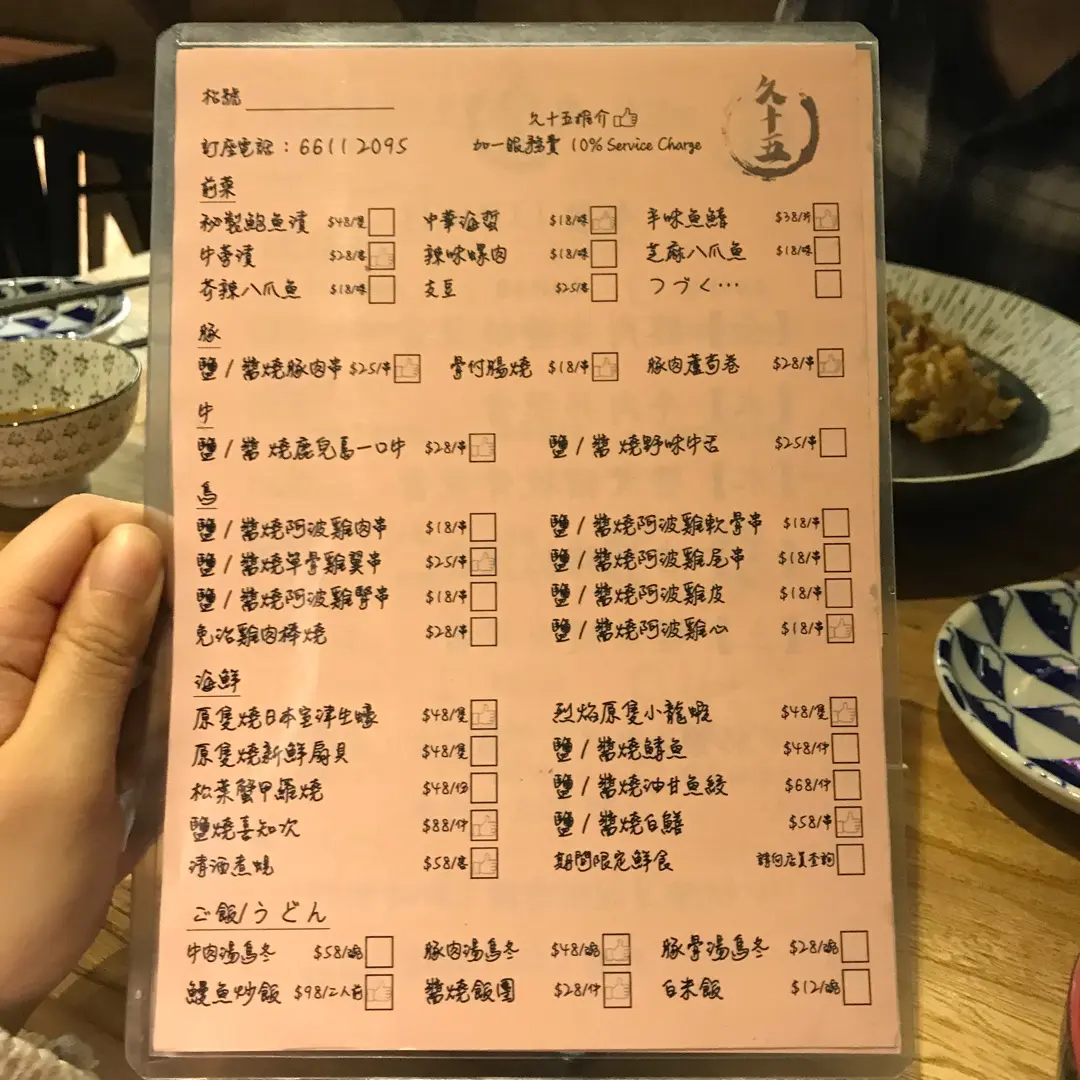 枱號
久十五推介
久十五
訂座電話：66112095
加一服務費 10% Service Charge
前菜
秘製鮑魚漬 $48/隻 中華海蜇 $18/味 半味魚鱔 $38/片
牛蒡漬 $28/客 辣味螺肉 $18/味 芝麻八爪魚 $18/味
芥辣八爪魚 $18/味 支豆 $25/客 つづく…
豚
鹽/醬燒豚肉串 $25/串 骨付腸燒 $18/串 豚肉蘆荀卷 $28/串
牛
鹽/醬 燒鹿兒島一口牛 $28/串 鹽/醬 燒野味牛舌 $25/串
鳥
鹽/醬燒阿波雞肉串 $18/串 鹽/醬燒阿波雞軟骨串 $18/串
鹽/醬燒單骨雞翼串 $25/串 鹽/醬燒阿波雞尾串 $18/串
鹽/醬燒阿波雞腎串 $18/串 鹽/醬燒阿波雞皮 $18/串
免治雞肉棒燒 $28/串 鹽/醬燒阿波雞心 $18/串
海鮮
原隻燒日本室津生蠔 $48/隻 烈焰原隻小龍蝦 $48/隻
原隻燒新鮮扇貝 $48/隻 鹽/醬燒鱘魚 $48/件
松葉蟹甲羅燒 $48/份 鹽/醬燒油甘魚鮫 $68/件
鹽燒喜知次 $88/件 鹽/醬燒白鱔 $58/串
清酒煮蜆 $58/客 期間限定鮮食 請向店員查詢
ご飯/うどん
牛肉湯烏冬 $58/碗 豚肉湯烏冬 $48/碗 豚骨湯烏冬 $28/碗
鰻魚炒飯 $98/二人前 醬燒飯團 $28/件 白米飯 $12/碗